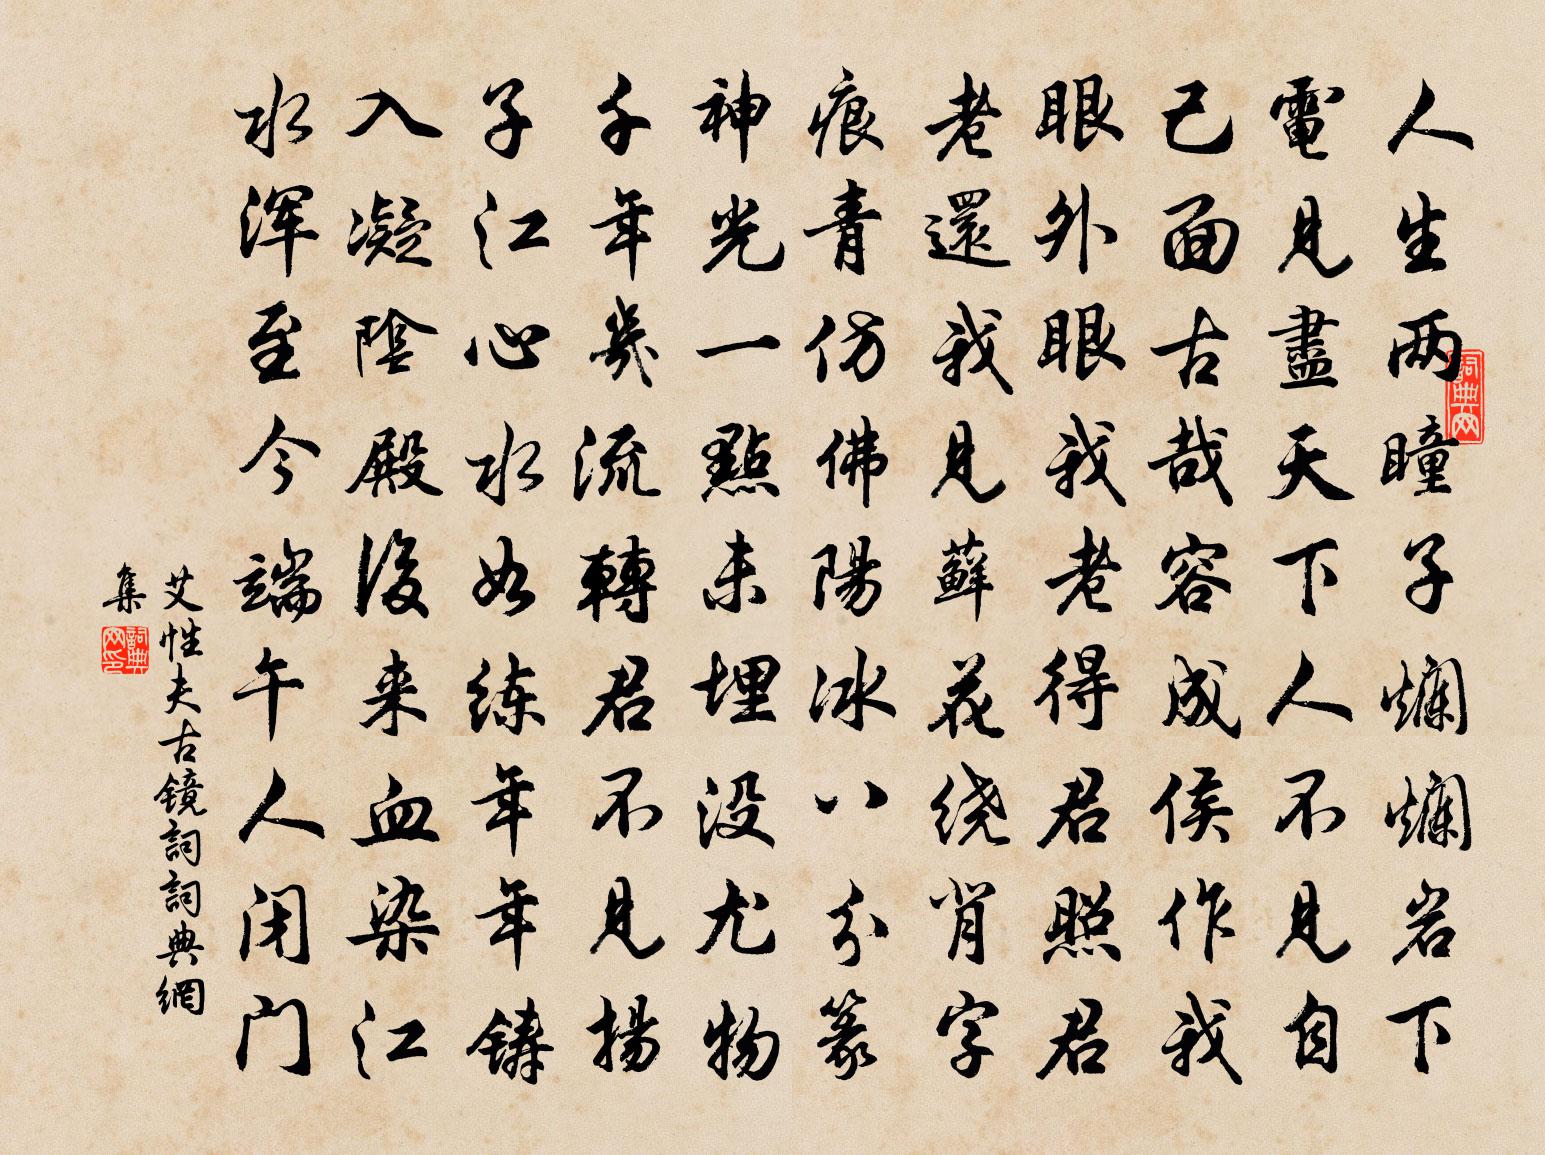 人生两瞳子爛爛岩下
電見盡天下人不見自
己面古哉容成侯作我
眼外眼我老得君照君
老還我見蘚花绕肖字
痕青仿佛陽冰八分篆
神光一點未埋没尤物
千年幾流轉君不見揚
子江心水如练年年鑄
入凝陰殿後来血染江
水浑至今端午人闭门
艾性夫古镜詞詞典網
集
詞典网
詞典网印